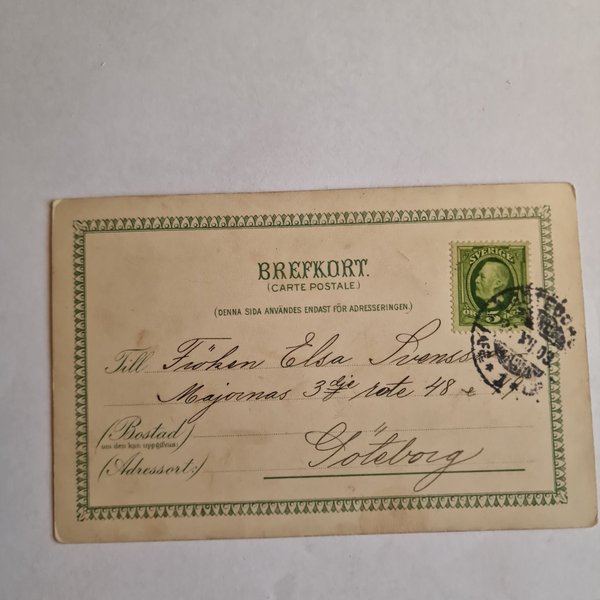 BREFKORT.
(CARTE POSTALE.)
(DENNA SIDA ANVÄNDES ENDAST FÖR ADRESSERINGEN.)
SVERIGE
5
Till Fröken Elsa
Majornas 3dje rote 48
(Bostad)
om den kan uppgifvas:
(Adressort:) Göteborg